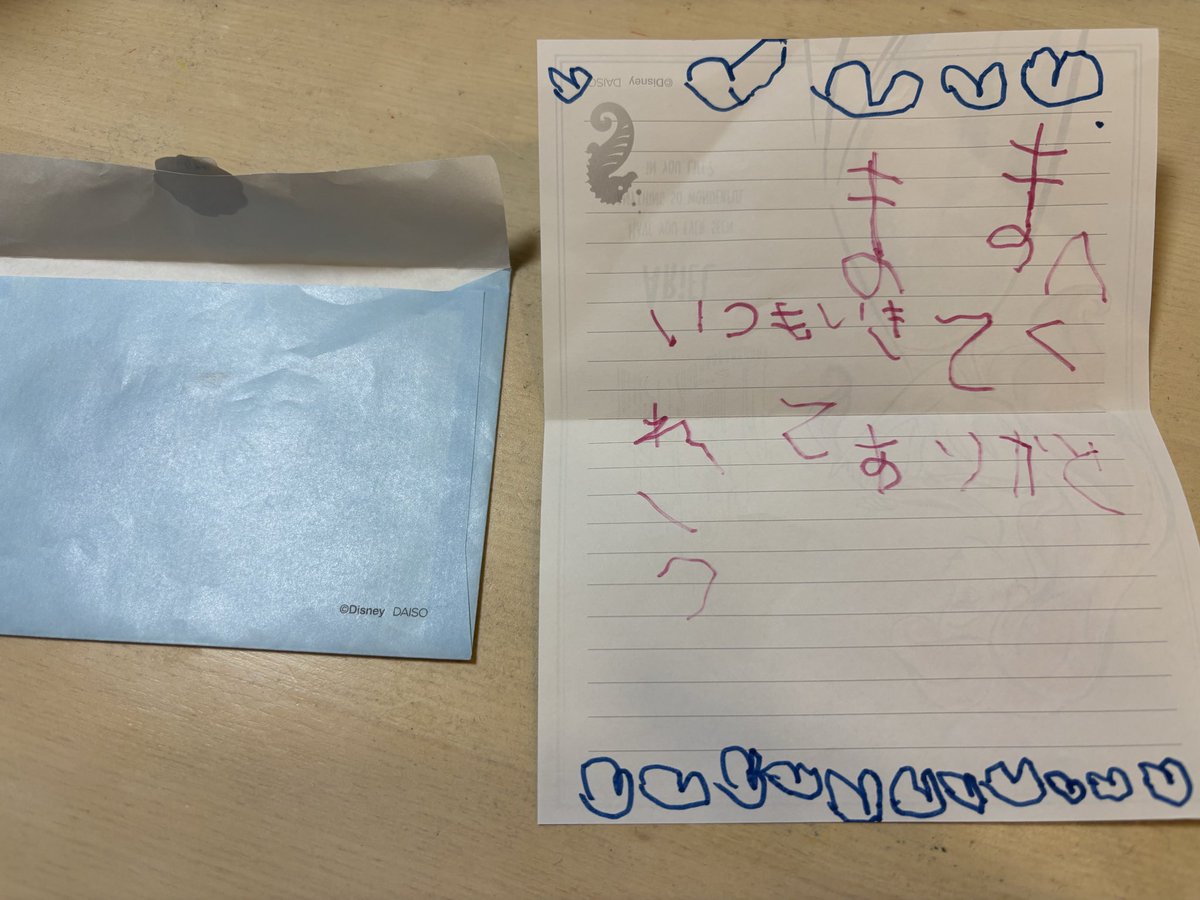 ままへ
いつもいきてく
れてありがと
う
©Disney DAISO
©Disney DAISO
ARIEL